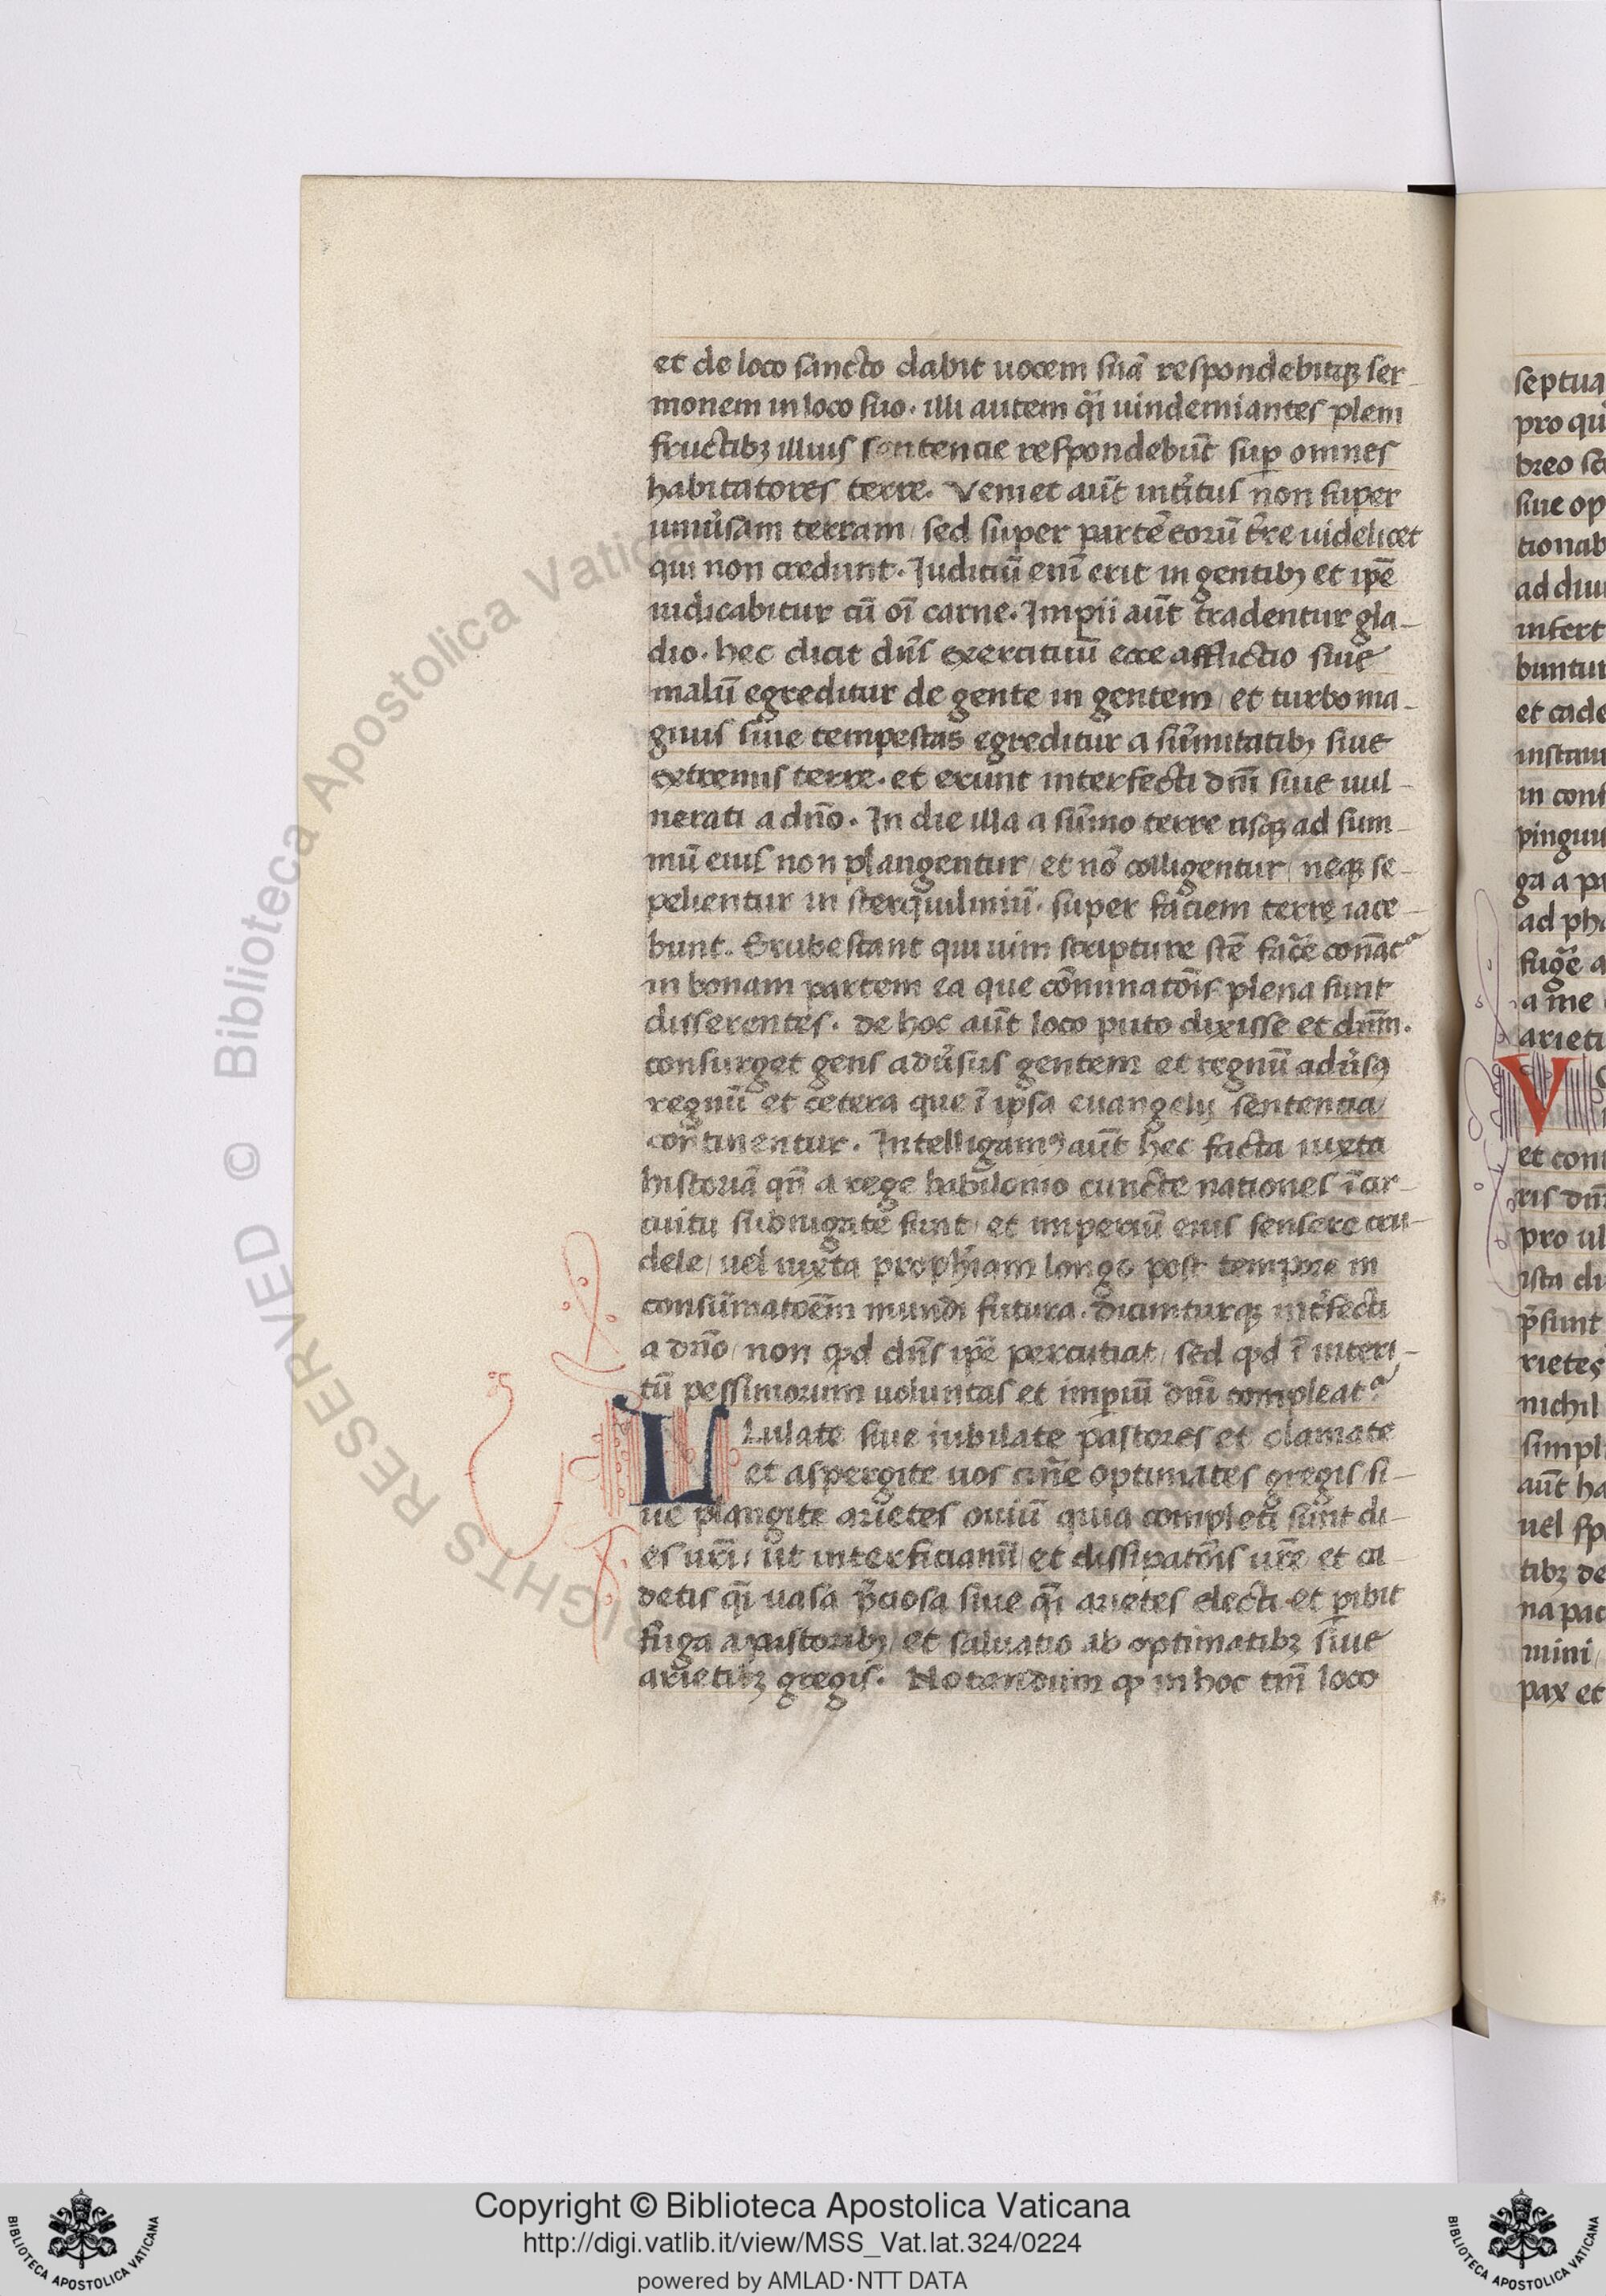 et de loco sancto dabit uocem suā respondebitqꝫ ser-
monem in loco suo. illi autem q̄i uindemiantes plem
fructibꝫ illius sentencie respondebūt suꝑ omnes
habitatores terre. Veniet aūt int̾itus non super
uniu̾sam terram / sed super partē eorū t̾re uidelicet
qui non credunt. Judiciū enī erit in gentibꝫ et ip̄e
iudicabitur cū oī carne. Impii aūt tradentur gla-
dio. hec dicit dn̄s exercituū ecce afflictio siue
malū egreditur de gente in gentem / et turbo ma-
gnus siue tempestas egreditur a sūmitatibꝫ siue
extremis terre. et erunt interfecti dn̄i siue uul-
nerati a dn̄o. In die illa a sūmo terre usqꝫ ad sum-
mū eius non plangentur / et nō colligentur / neqꝫ se-
pelientur in sterquiliniū. super faciem terre iace-
bunt. Erubescant qui uim scripture sc̄e fac̄e conāt᷑
in bonam partem ea que cōminatōis plena sunt
disserentes. de hoc aūt loco puto dixisse et dn̄m.
consurget gens adu̾sus gentem et regnū adu̾sꝰ
regnū et cetera que ī ipsa euangelij sentencia
continentur. Intelligamꝰ aūt hec facta iuxta
historiā qn̄ a rege babilonio cuncte nationes ī cir-
cuitu subiugate sunt / et imperiū eius sensere cru-
dele / uel iuxta proph̄iam longo post tempore in
consūmatoēm mundi futura. dicunturqꝫ int̾fecti
a dn̄o / non qd dn̄s ip̄e percutiat / sed qd ī interi-
tū pessimorum uoluntas et impiū dn̄i compleat᷑
ULulate siue iubilate pastores et clamate
et aspergite uos cin̄e optimates gregis si-
ue plangite arietes ouiū quia completi sunt di-
es ur̄i / ut interficiamī / et dissipatōis ur̄e et ca-
detis q̄i uasa p̄ciosa siue q̄i arietes electi et ꝑibit
fuga a pastoribꝫ / et saluatio ab optimatibꝫ siue
arietibꝫ gregis. Notandum ꝙ in hoc tm̄ loco
septua
pro qu
breo
siue op
tionab
ad diu
infert
buntur
et cade
instau
in con
pinguu
ga a pa
ad pha
fug̾e a
a me
arieti
V
et com
ris dn̄
pro ul
ista di
p̄sunt
rietes
nichil
simpl
aūt ha
uel
tibꝫ de
na pac
mini /
pax et
© Biblioteca Apostolica Vaticana
RIGHTS RESERVED
BIBLIOTECA APOSTOLICA VATICANA
Copyright © Biblioteca Apostolica Vaticana
http://digi.vatlib.it/view/MSS_Vat.lat.324/0224
powered by AMLAD·NTT DATA
BIBLIOTECA APOSTOLICA VATICANA